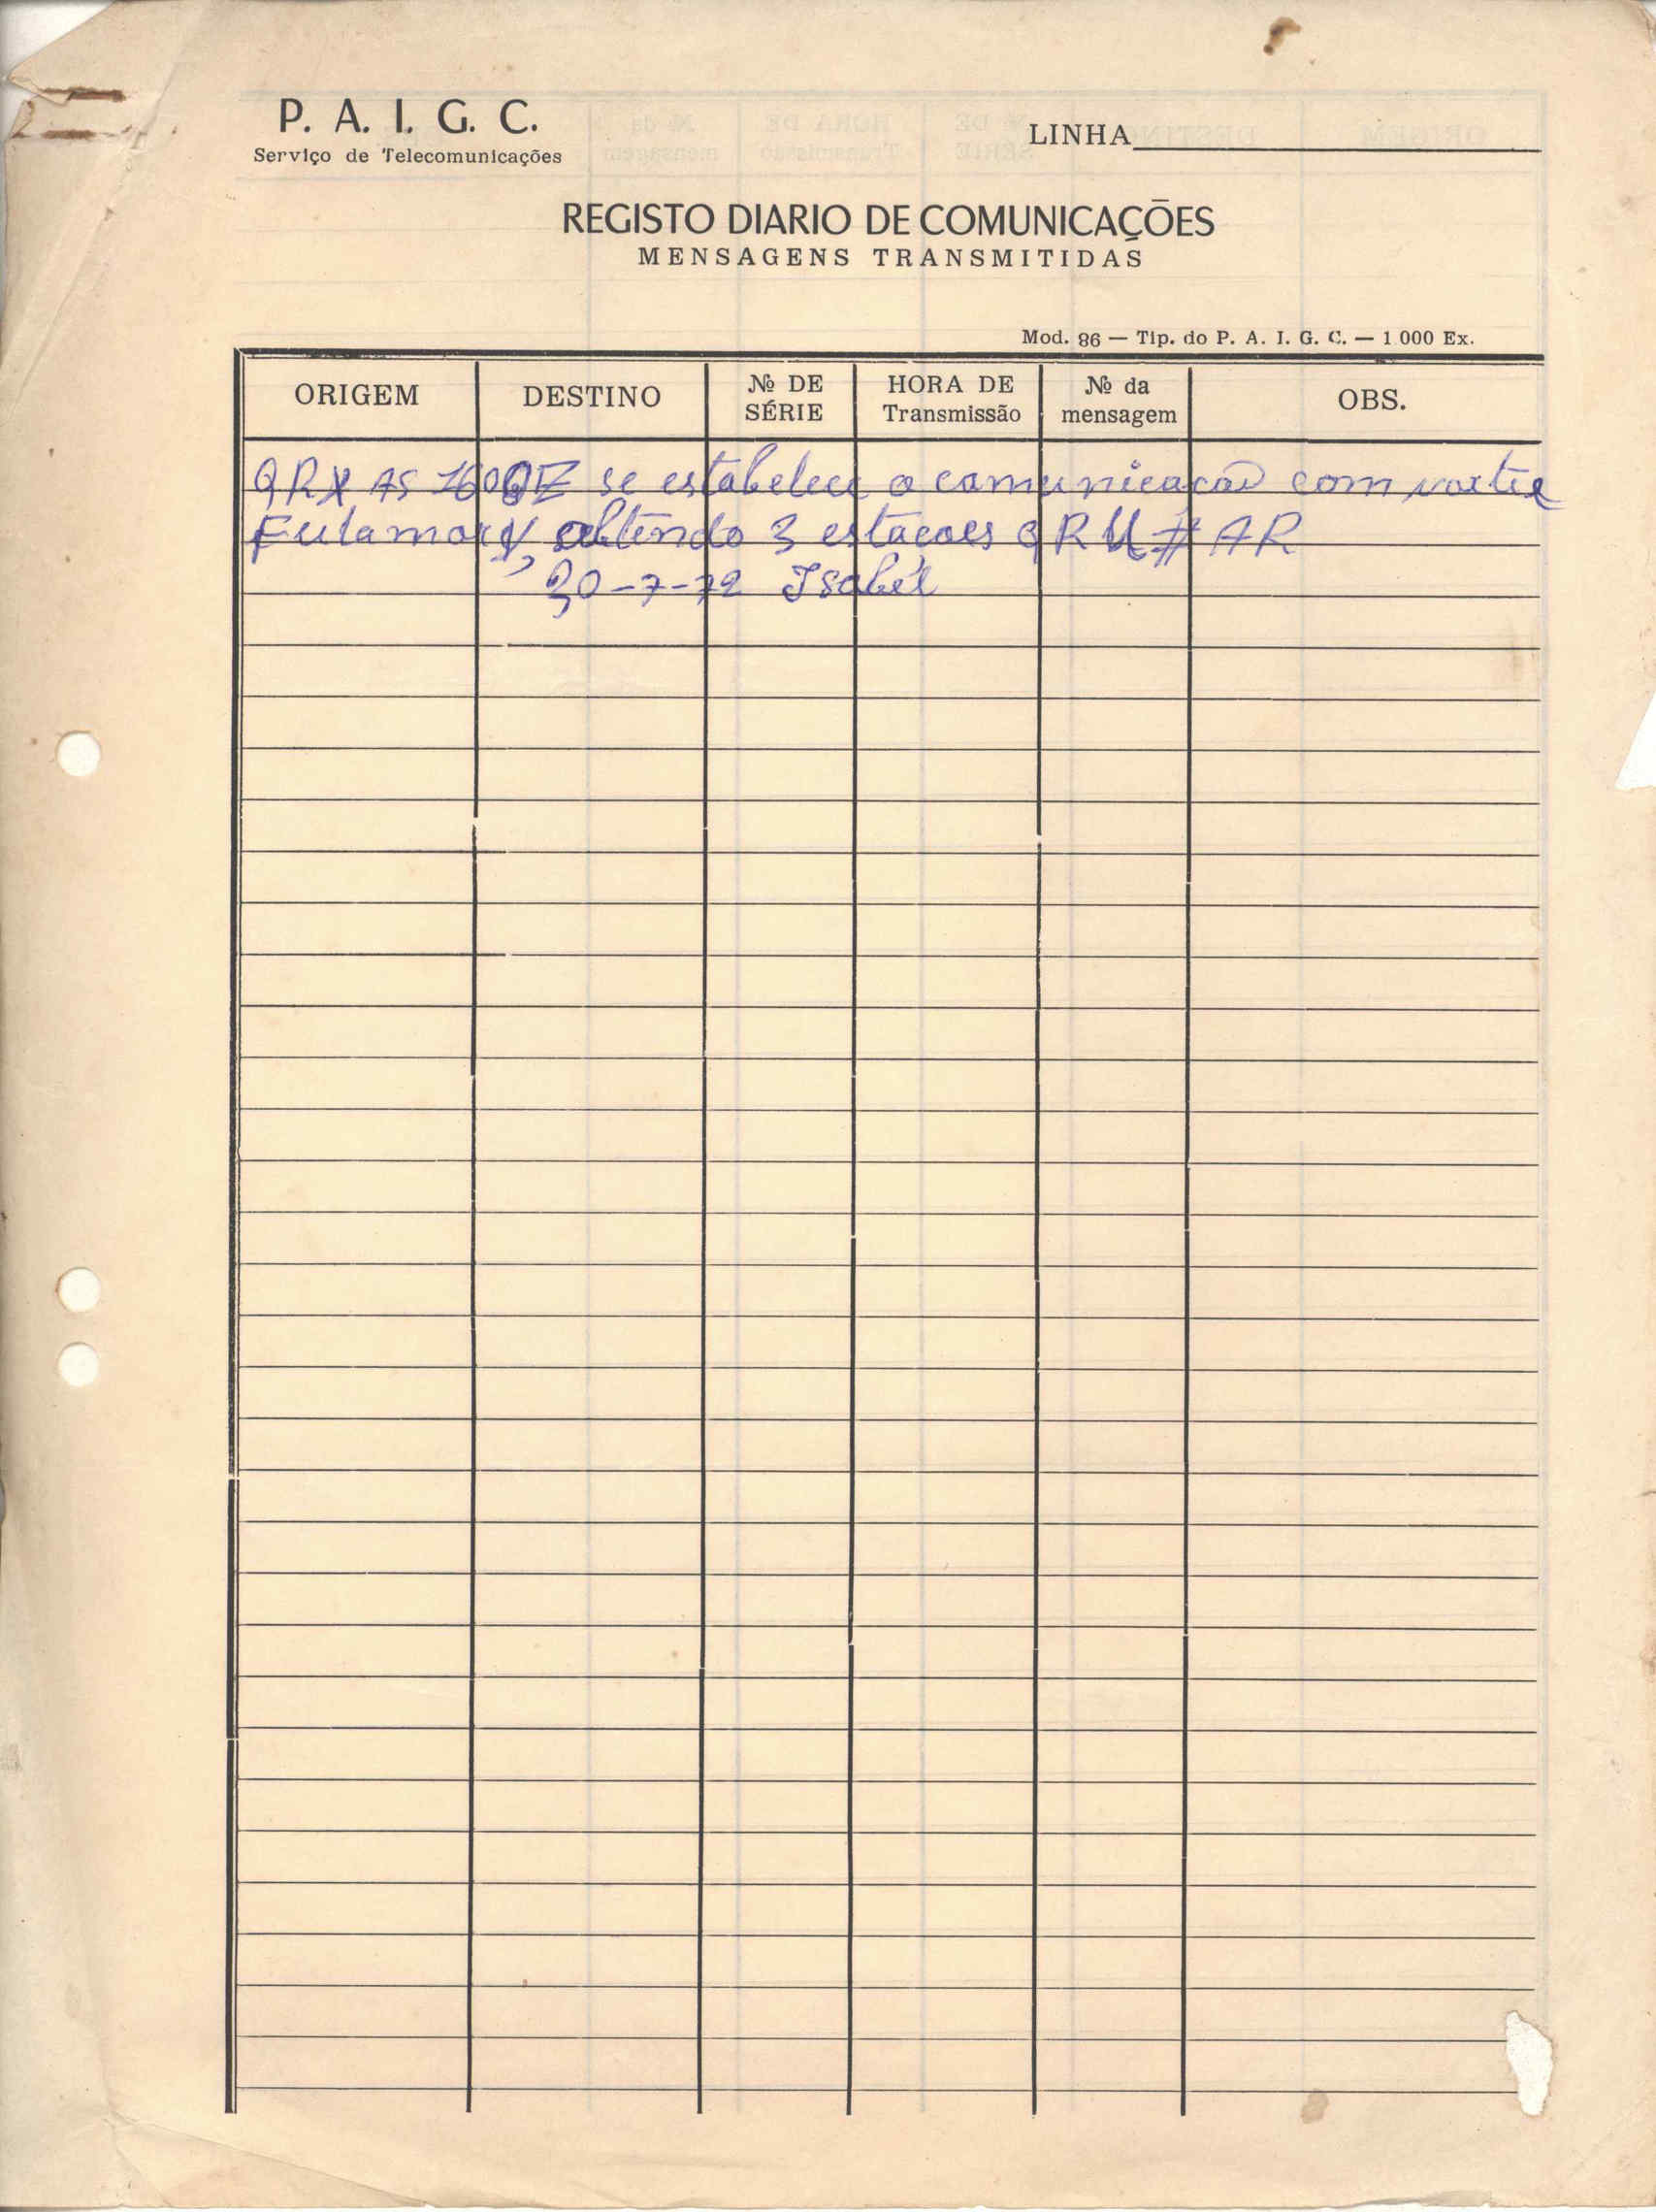 P. A. I. G. C.
Serviço de Telecomunicações
LINHA
REGISTO DIARIO DE COMUNICAÇÕES
MENSAGENS TRANSMITIDAS
Mod. 86 — Tip. do P. A. I. G. C. — 1.000 Ex.
ORIGEM DESTINO № DE SÉRIE HORA DE Transmissão № da mensagem OBS.
QRX AS 1600Z se estabelece o comunicação com
3 estacoes QRU # AR
30-7-72 Isabél